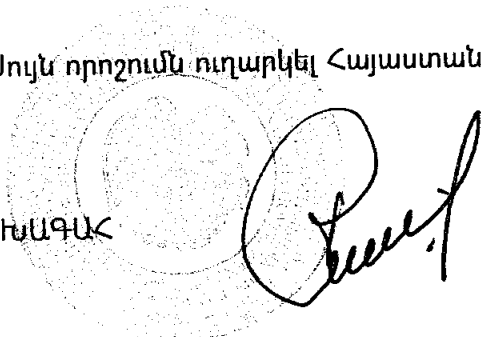 Սույն որոշումն ուղարկել Հայաստան
ԽԱԳԱՀ